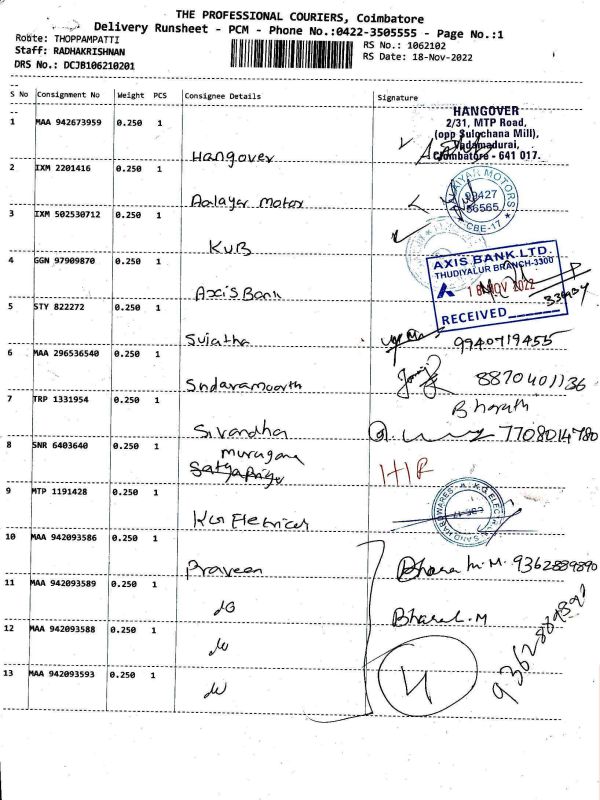 THE PROFESSIONAL COURIERS, Coimbatore
Delivery Runsheet - PCM - Phone No.:0422-3505555 - Page No.:1
Route: THOPPAMPATTI
RS No.: 1062102
Staff: RADHAKRISHNAN
RS Date: 18-Nov-2022
DRS No.: DCJB106210201
S No Consignment No Weight PCS Consignee Details Signature
1 MAA 942673959 0.250 1 Hangover
HANGOVER
2/31, MTP Road,
(opp Sulochana Mill),
Vadamadurai,
Coimbatore - 641 017.
2 IXM 2201416 0.250 1 Aalayar motor
AALAYAR MOTORS
99427
56565
CBE-17
3 IXM 502530712 0.250 1 KVB
4 GGN 97909870 0.250 1 Axis Bank
AXIS BANK LTD.
THUDIYALUR BRANCH-3300
18 NOV 2022
RECEIVED
5 STY 822272 0.250 1 Sujatha 9940719455
6 MAA 296536540 0.250 1 Sndaramoorth 8870401136
7 TRP 1331954 0.250 1 Sivandha Bharath 7708014780
8 SNR 6403640 0.250 1 murugana
Satyapriya HR
9 MTP 1191428 0.250 1 KCN Eletrical
10 MAA 942093586 0.250 1 Praveen Bharath.M. 9362889890
11 MAA 942093589 0.250 1 do Bharat.M
12 MAA 942093588 0.250 1 do
13 MAA 942093593 0.250 1 do 4